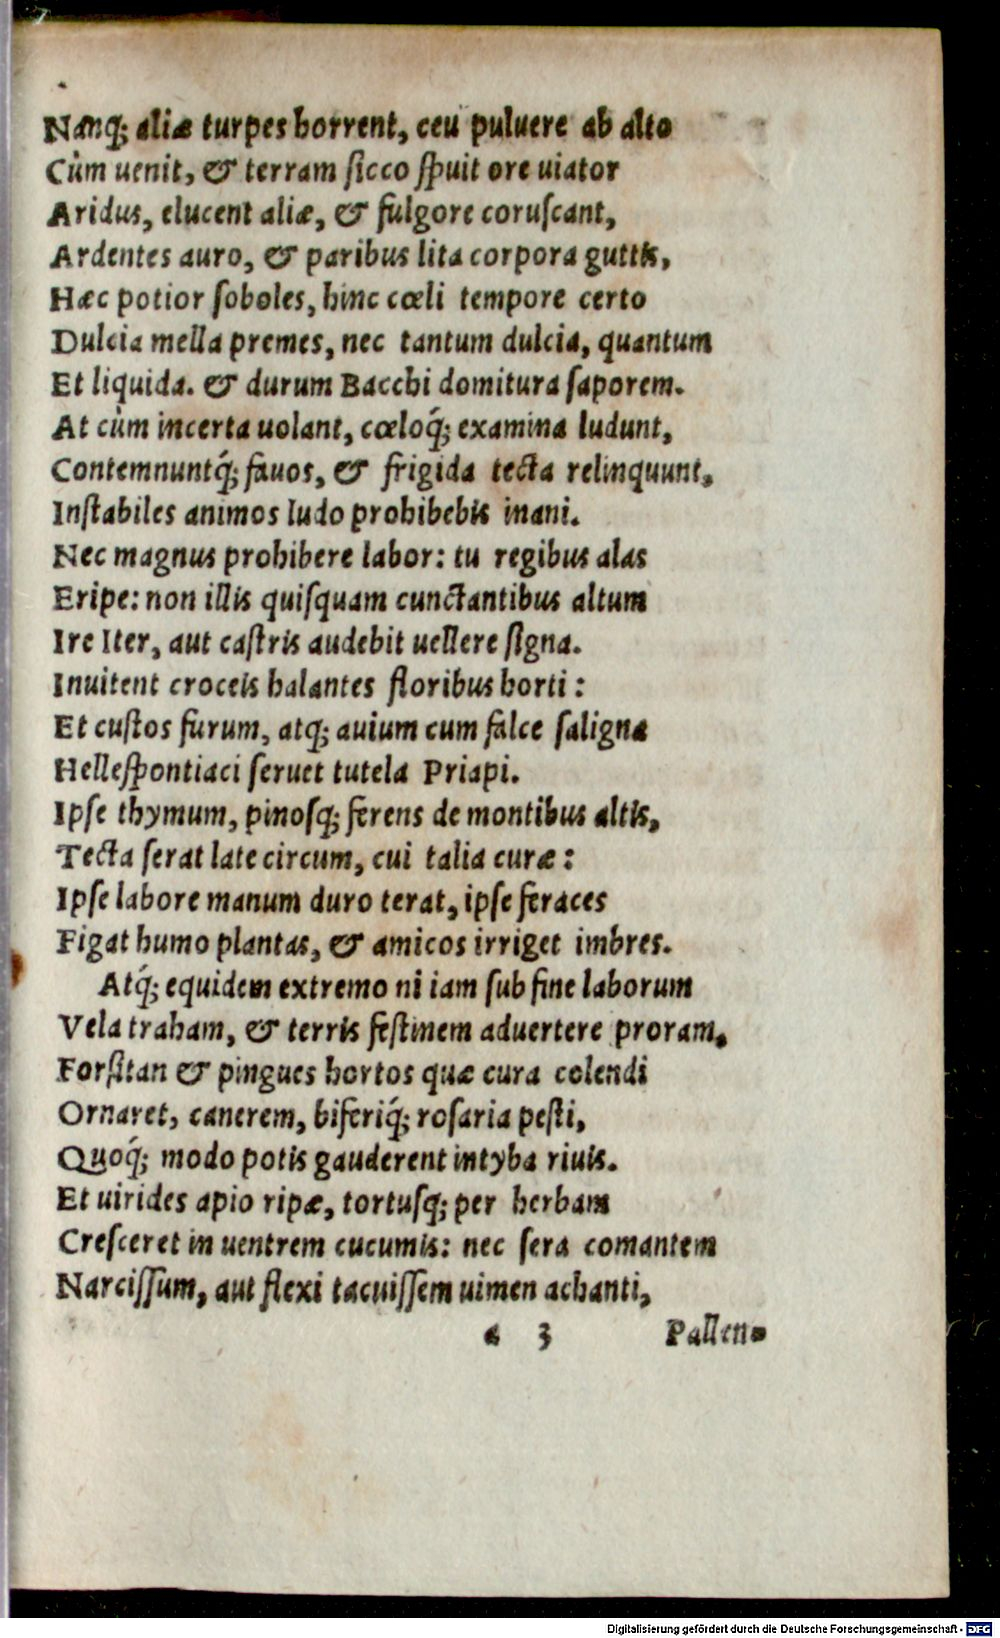 Nanq; aliæ turpes horrent, ceu puluere ab alto
Cùm uenit, & terram sicco spuit ore uiator
Aridus, elucent aliæ, & fulgore coruscant,
Ardentes auro, & paribus lita corpora guttis,
Hæc potior soboles, hinc cœli tempore certo
Dulcia mella premes, nec tantum dulcia, quantum
Et liquida. & durum Bacchi domitura saporem.
At cùm incerta uolant, cœloq́; examina ludunt,
Contemnuntq́; fauos, & frigida tecta relinquunt,
Instabiles animos ludo prohibebis inani.
Nec magnus prohibere labor: tu regibus alas
Eripe: non illis quisquam cunctantibus altum
Ire Iter, aut castris audebit uellere signa.
Inuitent croceis halantes floribus horti:
Et custos furum, atq; auium cum falce saligna
Hellespontiaci seruet tutela Priapi.
Ipse thymum, pinosq; ferens de montibus altis,
Tecta serat late circum, cui talia curæ:
Ipse labore manum duro terat, ipse feraces
Figat humo plantas, & amicos irriget imbres.
Atq́; equidem extremo ni iam sub fine laborum
Vela traham, & terris festinem aduertere proram,
Forsitan & pingues hortos quæ cura colendi
Ornaret, canerem, biferiq́; rosaria pesti,
Quoq́; modo potis gauderent intyba riuis.
Et uirides apio ripæ, tortusq; per herbam
Cresceret in uentrem cucumis: nec sera comantem
Narcissum, aut flexi tacuissem uimen achanti,
3 Pallen-
Digitalisierung gefördert durch die Deutsche Forschungsgemeinschaft - DFG